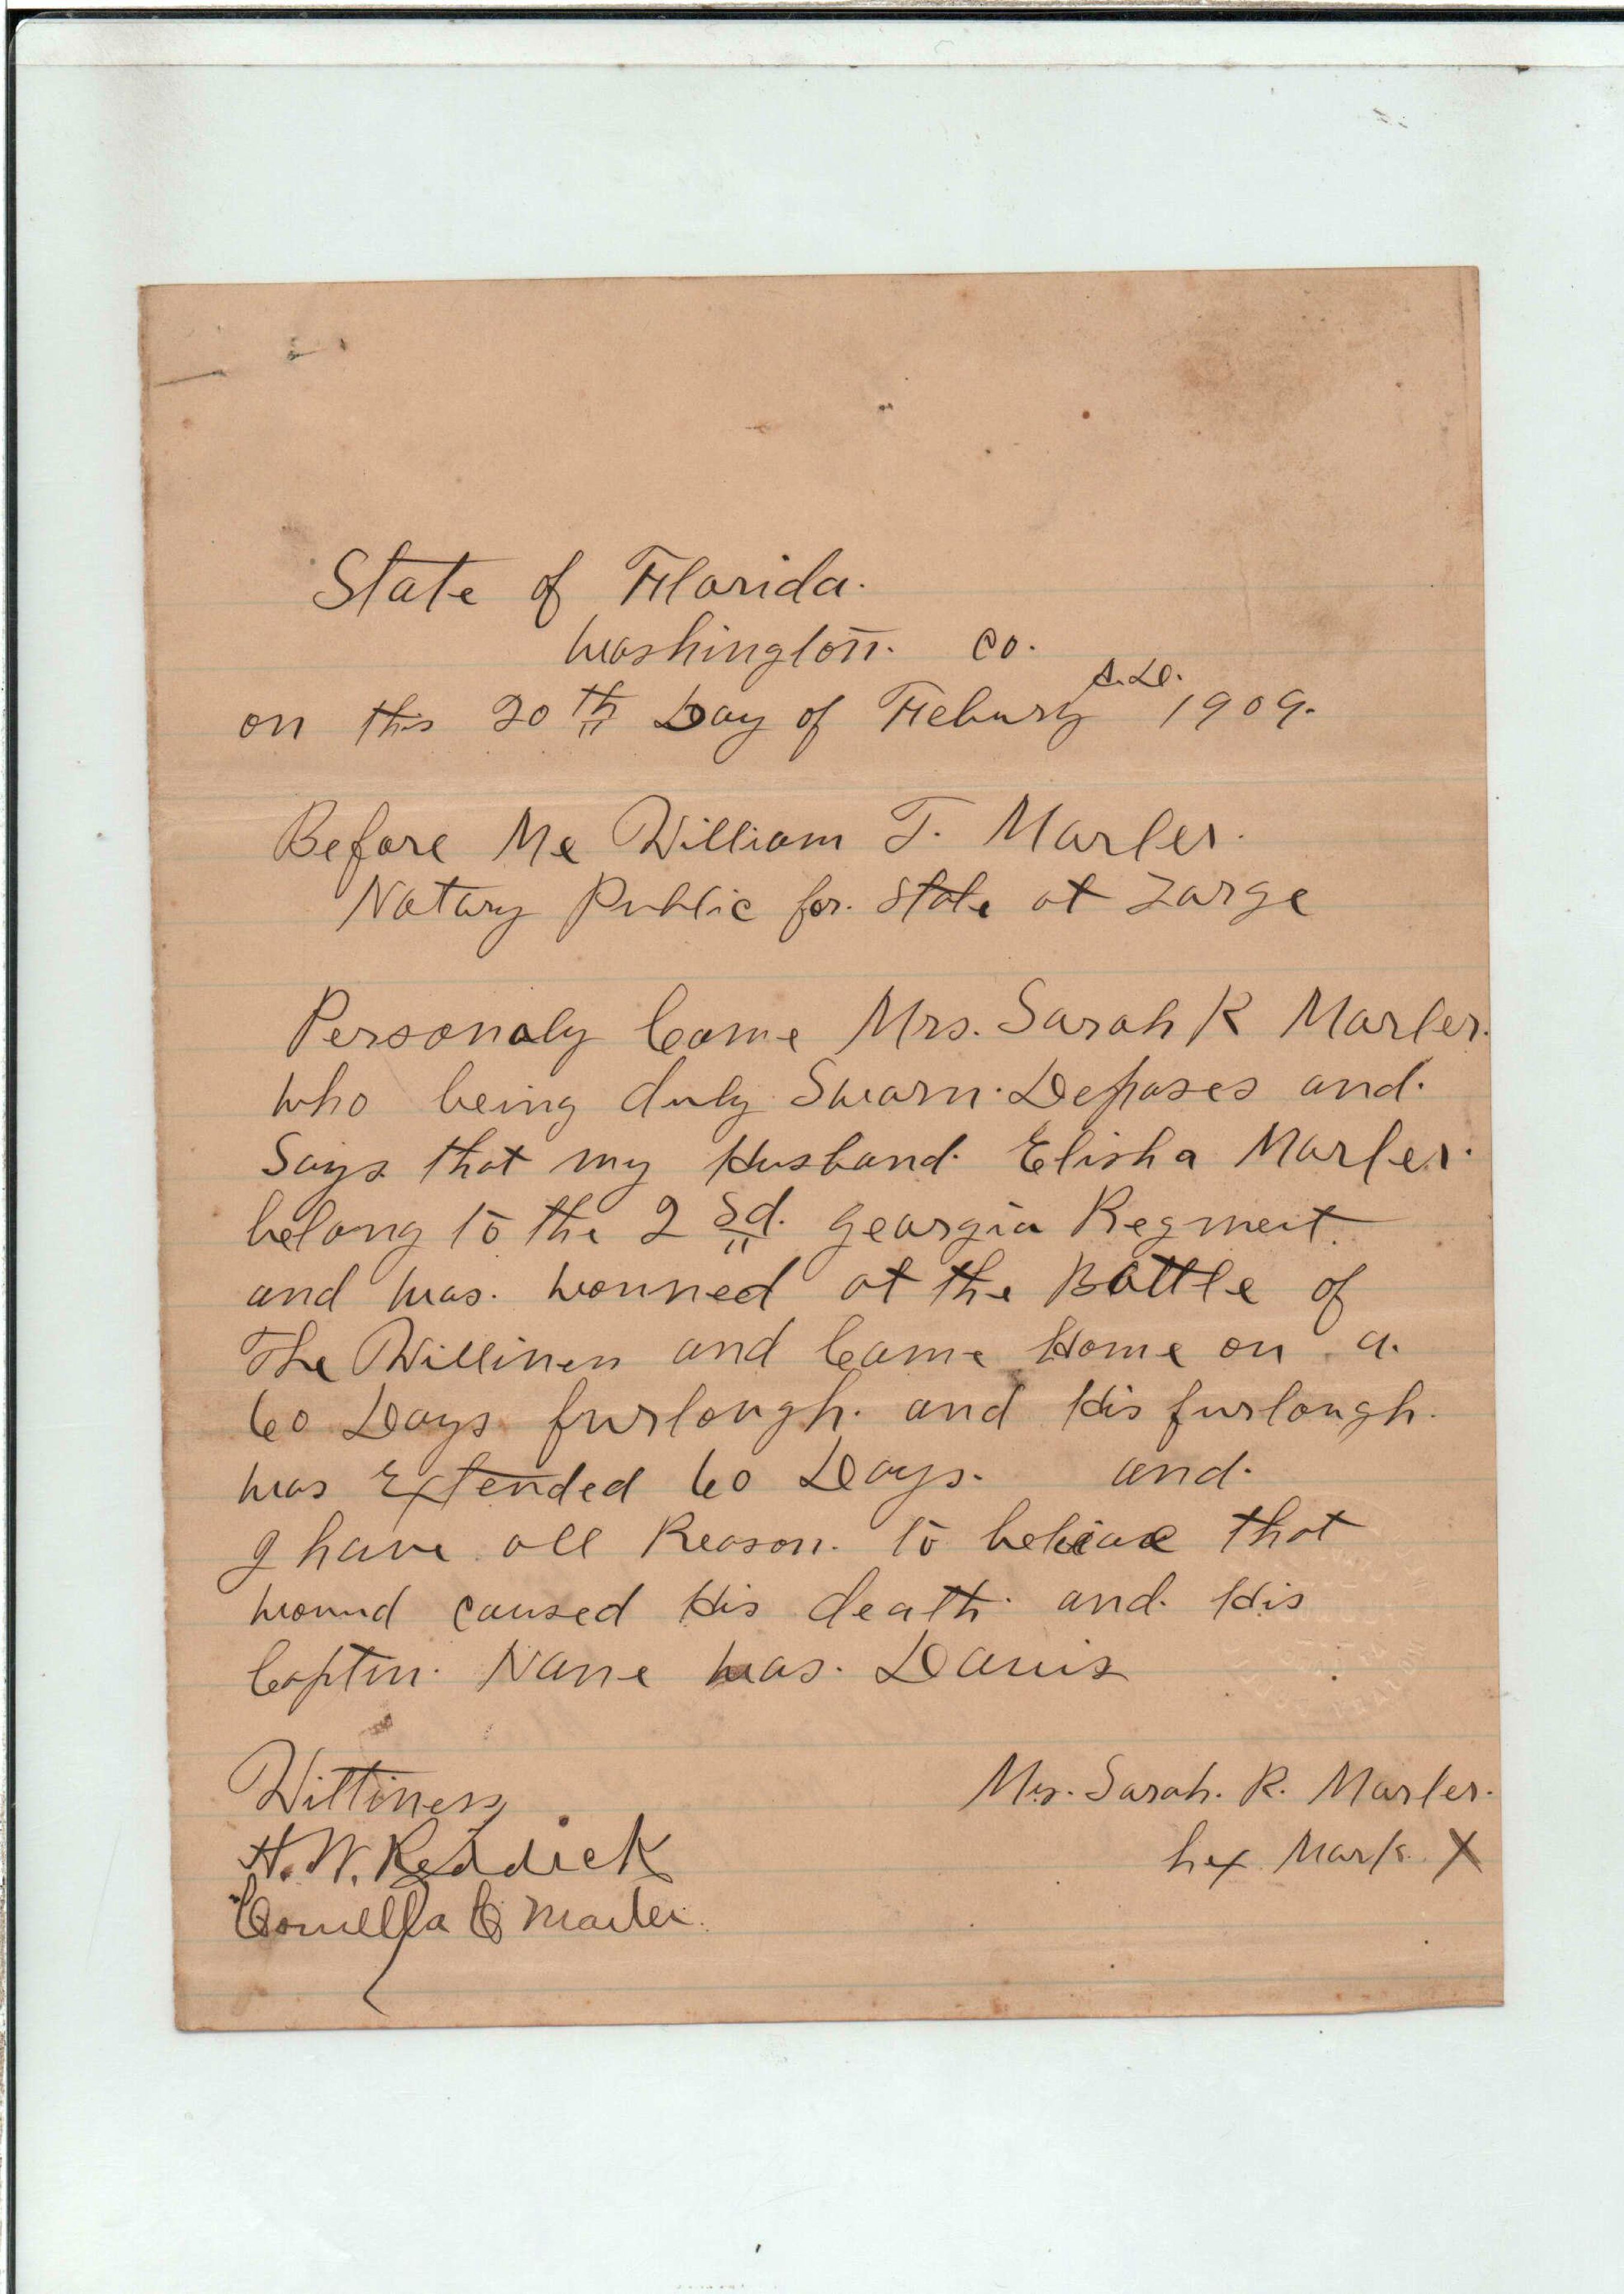 State of Florida.
Washington. co.
A.D.
on this 20th Day of Febury 1909.
Before Me William T. Marler.
Notary Public for. State at Large
Personaly Came Mrs. Sarah R Marler.
who being duly Sworn. Deposes and.
Says that my Husband. Elisha Marler.
belong to the 2 sd. georgia Regment.
and was. wonned at the Battle of
The Willinen and Came Home on a.
60 Days furlough. and His furlough.
was Extended 60 Days. and.
I have all Reason. to believe that
wound caused His death. and. His
Captin. Name was. Davis
Wittiness
Mrs. Sarah. R. Marler.
H. W. Reddick
her Mark. X
Cornellia C Marler.